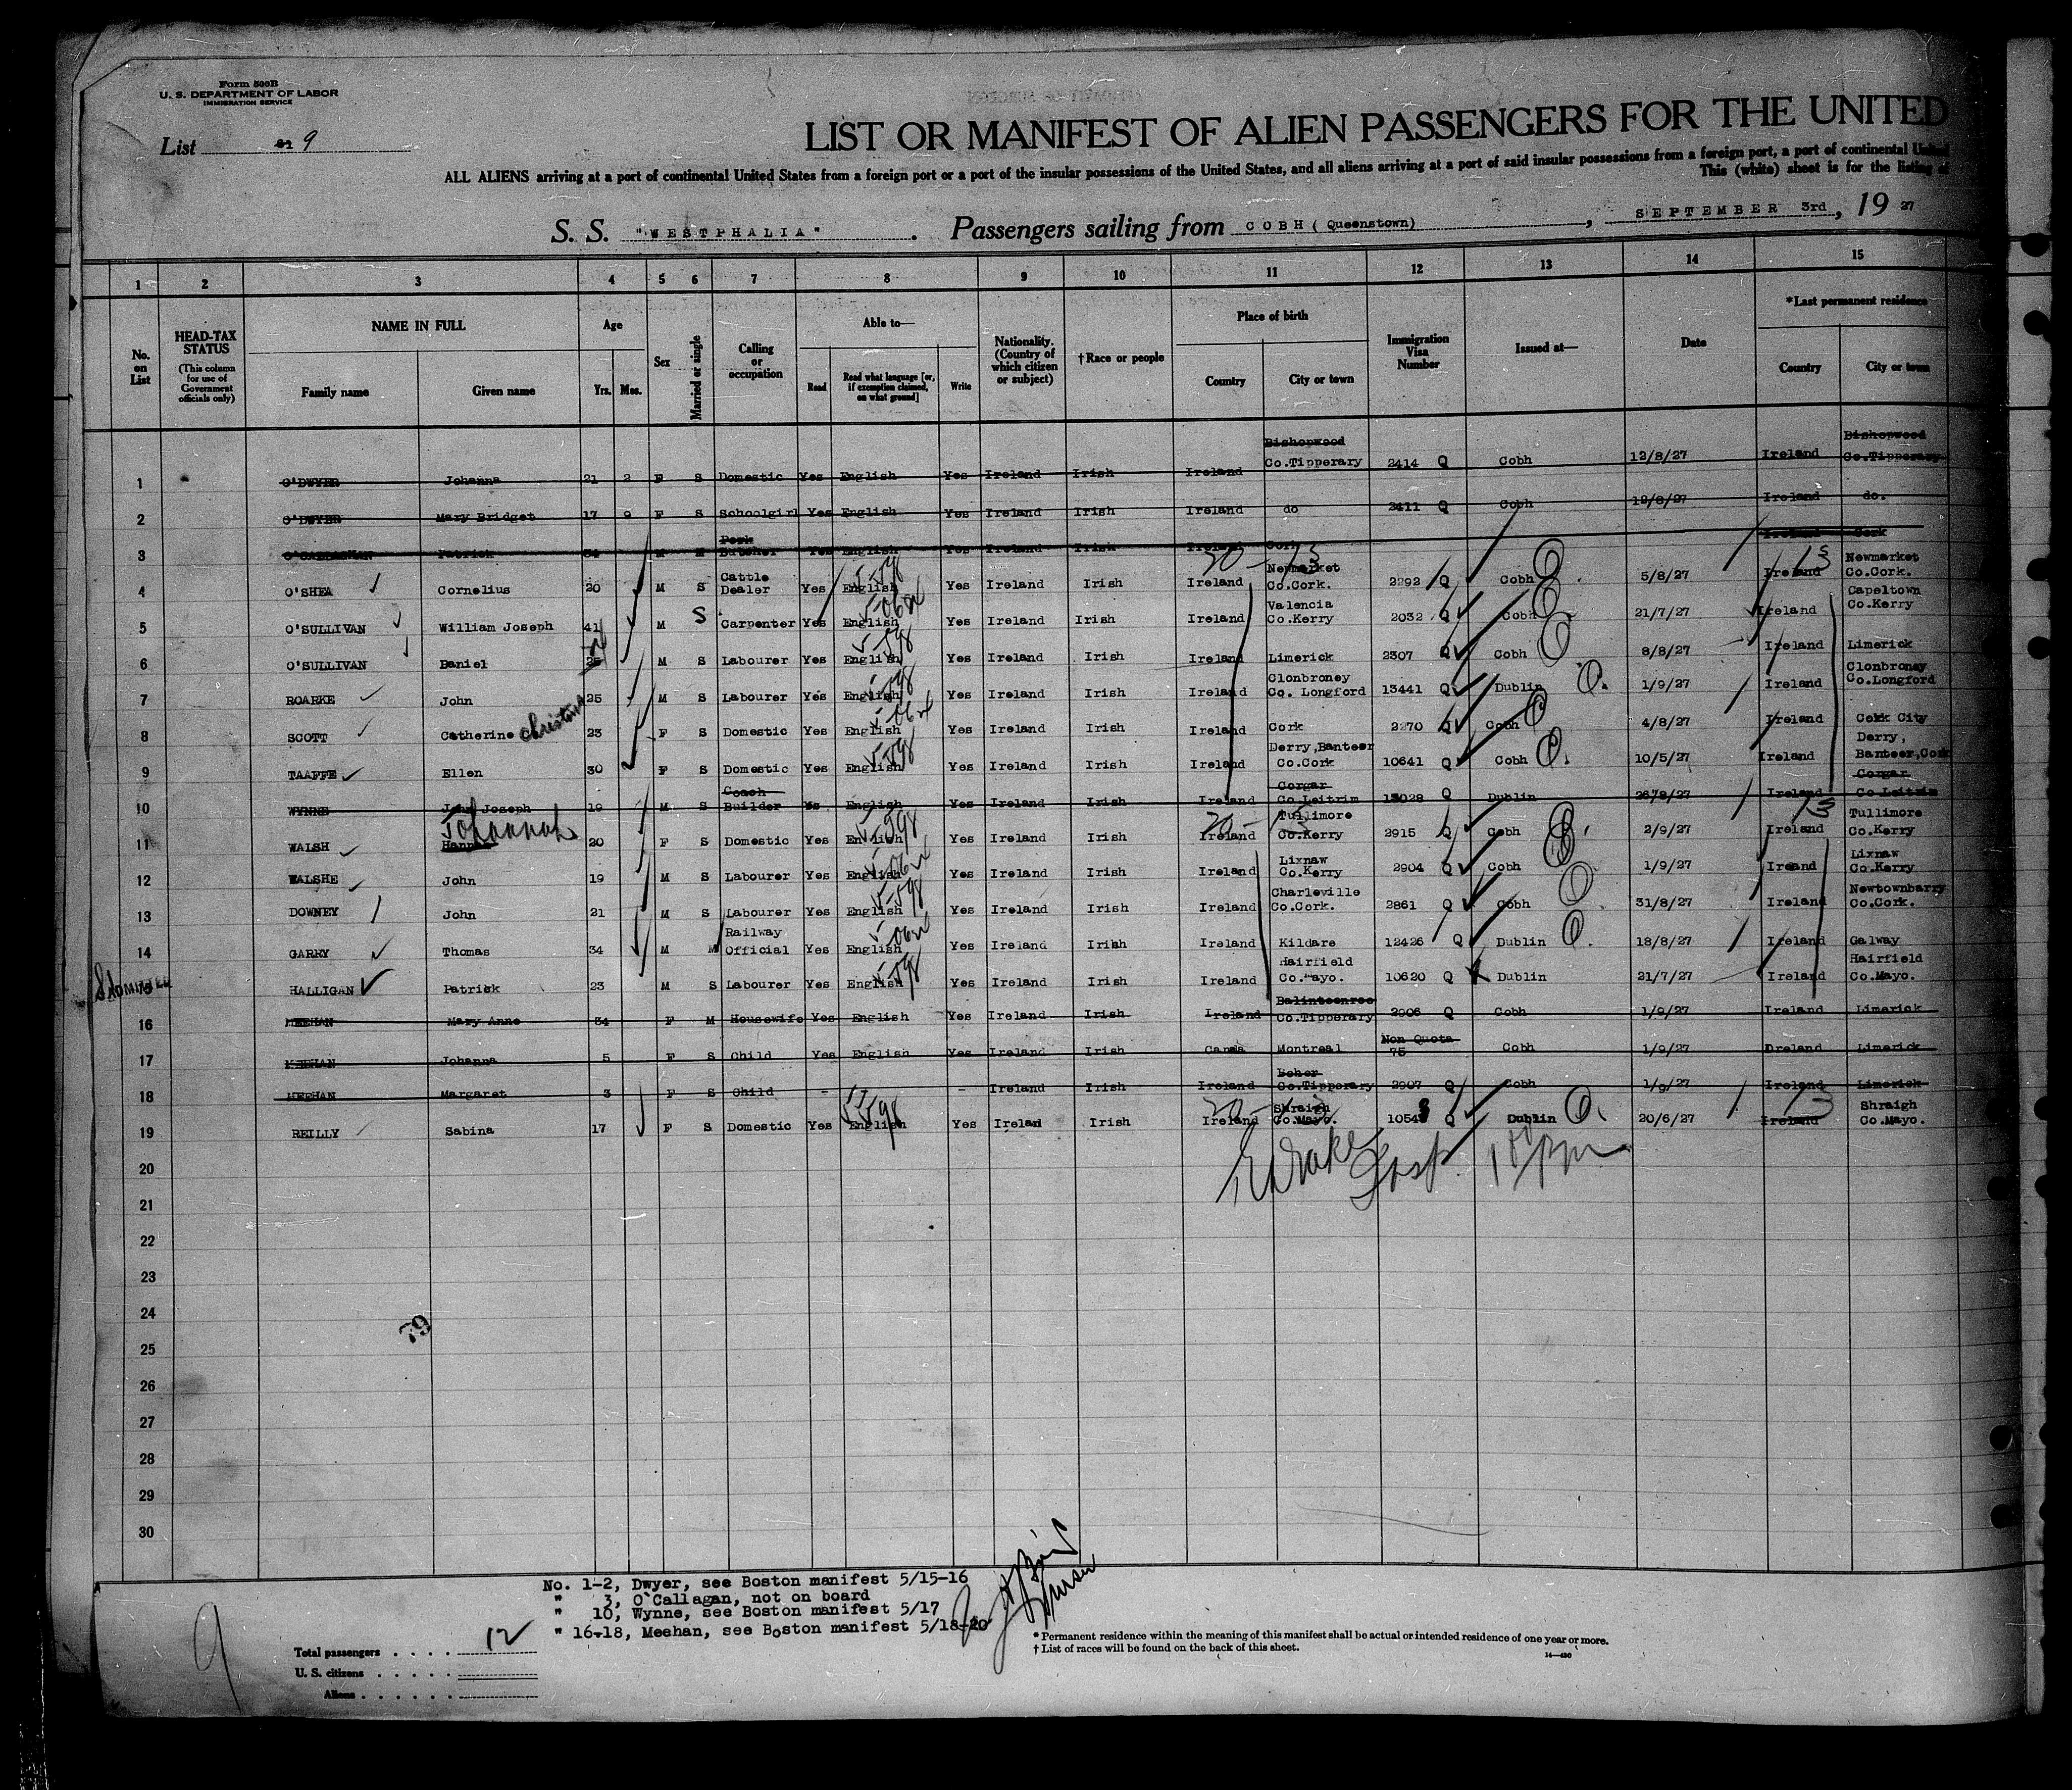 Form 500B
U. S. DEPARTMENT OF LABOR
IMMIGRATION SERVICE
List 9
LIST OR MANIFEST OF ALIEN PASSENGERS FOR THE UNITED
ALL ALIENS arriving at a port of continental United States from a foreign port or a port of the insular possessions of the United States, and all aliens arriving at a port of said insular possessions from a foreign port, a port of continental United
This (white) sheet is for the listing of
S. S. "WESTPHALIA". Passengers sailing from COBH (Queenstown), SEPTEMBER 3rd, 19 27
1 2 3 4 5 6 7 8 9 10 11 12 13 14 15
No. on List
HEAD-TAX STATUS (This column for use of Government officials only)
NAME IN FULL Family name Given name
Age Yrs. Mos.
Sex
Married or single
Calling or occupation
Able to— Read Read what language [or, if exemption claimed, on what ground] Write
Nationality. (Country of which citizen or subject)
†Race or people
Place of birth Country City or town
Immigration Visa Number
Issued at—
Date
*Last permanent residence Country City or town
1 O'DWYER Johanna 21 2 F S Domestic Yes English Yes Ireland Irish Ireland Bishopwood Co.Tipperary 2414 Q Cobh 12/8/27 Ireland Bishopwood Co.Tipperary
2 O'DWYER Mary Bridget 17 9 F S Schoolgirl Yes English Yes Ireland Irish Ireland do 2411 Q Cobh 12/8/27 Ireland do.
3 O'CALLAGHAN Patrick 34 M M Pork Butcher Yes English Yes Ireland Irish Ireland Cork Ireland Cork
4 O'SHEA Cornelius 20 M S Cattle Dealer Yes English Yes Ireland Irish Ireland Newmarket Co.Cork. 2292 Q Cobh 5/8/27 Ireland Newmarket Co.Cork.
5 O'SULLIVAN William Joseph 41 M S Carpenter Yes English Yes Ireland Irish Ireland Valencia Co.Kerry 2032 Q Cobh 21/7/27 Ireland Capeltown Co.Kerry
6 O'SULLIVAN Daniel M S Labourer Yes English Yes Ireland Irish Ireland Limerick 2307 Q Cobh 8/8/27 Ireland Limerick
7 ROARKE John 25 M S Labourer Yes English Yes Ireland Irish Ireland Clonbroney Co. Longford 13441 Q Dublin 1/9/27 Ireland Clonbroney Co.Longford
8 SCOTT Catherine Christina 23 F S Domestic Yes English Yes Ireland Irish Ireland Cork 2270 Q Cobh 4/8/27 Ireland Cork City
9 TAAFFE Ellen 30 F S Domestic Yes English Yes Ireland Irish Ireland Derry,Banteer Co.Cork 10641 Q Cobh 10/5/27 Ireland Derry, Banteer,Cork
10 WYNNE John Joseph 19 M S Coach Builder Yes English Yes Ireland Irish Ireland Corgar Co.Leitrim 13028 Q Dublin 26/8/27 Ireland Corgar Co.Leitrim
11 WALSH Hanna Johannah 20 F S Domestic Yes English Yes Ireland Irish Ireland Tullimore Co.Kerry 2915 Q Cobh 2/9/27 Ireland Tullimore Co.Kerry
12 WALSHE John 19 M S Labourer Yes English Yes Ireland Irish Ireland Lixnaw Co.Kerry 2904 Q Cobh 1/9/27 Ireland Lixnaw Co.Kerry
13 DOWNEY John 21 M S Labourer Yes English Yes Ireland Irish Ireland Charleville Co.Cork. 2861 Q Cobh 31/8/27 Ireland Newtownbarry Co.Cork.
14 GARRY Thomas 34 M M Railway Official Yes English Yes Ireland Irish Ireland Kildare 12426 Q Dublin 18/8/27 Ireland Galway
15 ADMITTED HALLIGAN Patrick 23 M S Labourer Yes English Yes Ireland Irish Ireland Hairfield Co.Mayo. 10620 Q Dublin 21/7/27 Ireland Hairfield Co.Mayo.
16 MEEHAN Mary Anne 34 F M Housewife Yes English Yes Ireland Irish Ireland Co.Tipperary 2906 Q Cobh 1/9/27 Ireland Limerick
17 MEEHAN Johanna 5 F S Child Yes English Yes Ireland Irish Canda Montreal Non Quota 75 Cobh 1/9/27 Dreland Limerick
18 MEEHAN Margaret 3 F S Child - - Ireland Irish Ireland Boher Co.Tipperary 2907 Q Cobh 1/9/27 Ireland Limerick
19 REILLY Sabina 17 F S Domestic Yes English Yes Ireland Irish Ireland Shraigh Co.Mayo. 10548 Q Dublin 20/6/27 Ireland Shraigh Co.Mayo.
20
21
22
23
24
25
26
27
28
29
30
79
No. 1-2, Dwyer, see Boston manifest 5/15-16
" 3, O'Callagan, not on board
" 10, Wynne, see Boston manifest 5/17
" 16-18, Meehan, see Boston manifest 5/18-20
9
Total passengers . . . . 12
U. S. citizens . . . . .
Aliens . . . . . .
* Permanent residence within the meaning of this manifest shall be actual or intended residence of one year or more.
† List of races will be found on the back of this sheet.
14—430